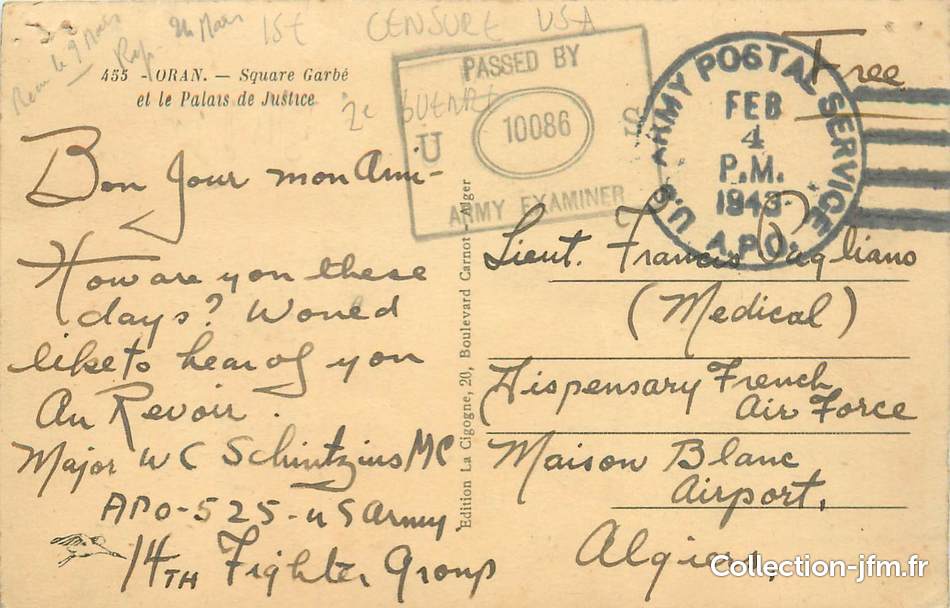 Recu le 9 Mars
Rep. 24 Mars
ISE CENSURE USA
2e GUERRE
455 - ORAN. — Square Garbé
et le Palais de Justice
PASSED BY
U 10086 S
ARMY EXAMINER
ARMY POSTAL SERVICE
FEB
4
P.M.
1943
U.S. A.P.O.
Free
Bon Jour mon Ami-
How are you these
days? Would
like to hear of you
Au Revoir.
Major WC Schintzius MC
APO-525-US Army
14TH Fighter Group
Edition La Cigogne, 20, Boulevard Carnot - Alger
Lieut. Francis Pugliano
(Medical)
Dispensary French
Air Force
Maison Blanc
Airport,
Algiers.
Collection-jfm.fr